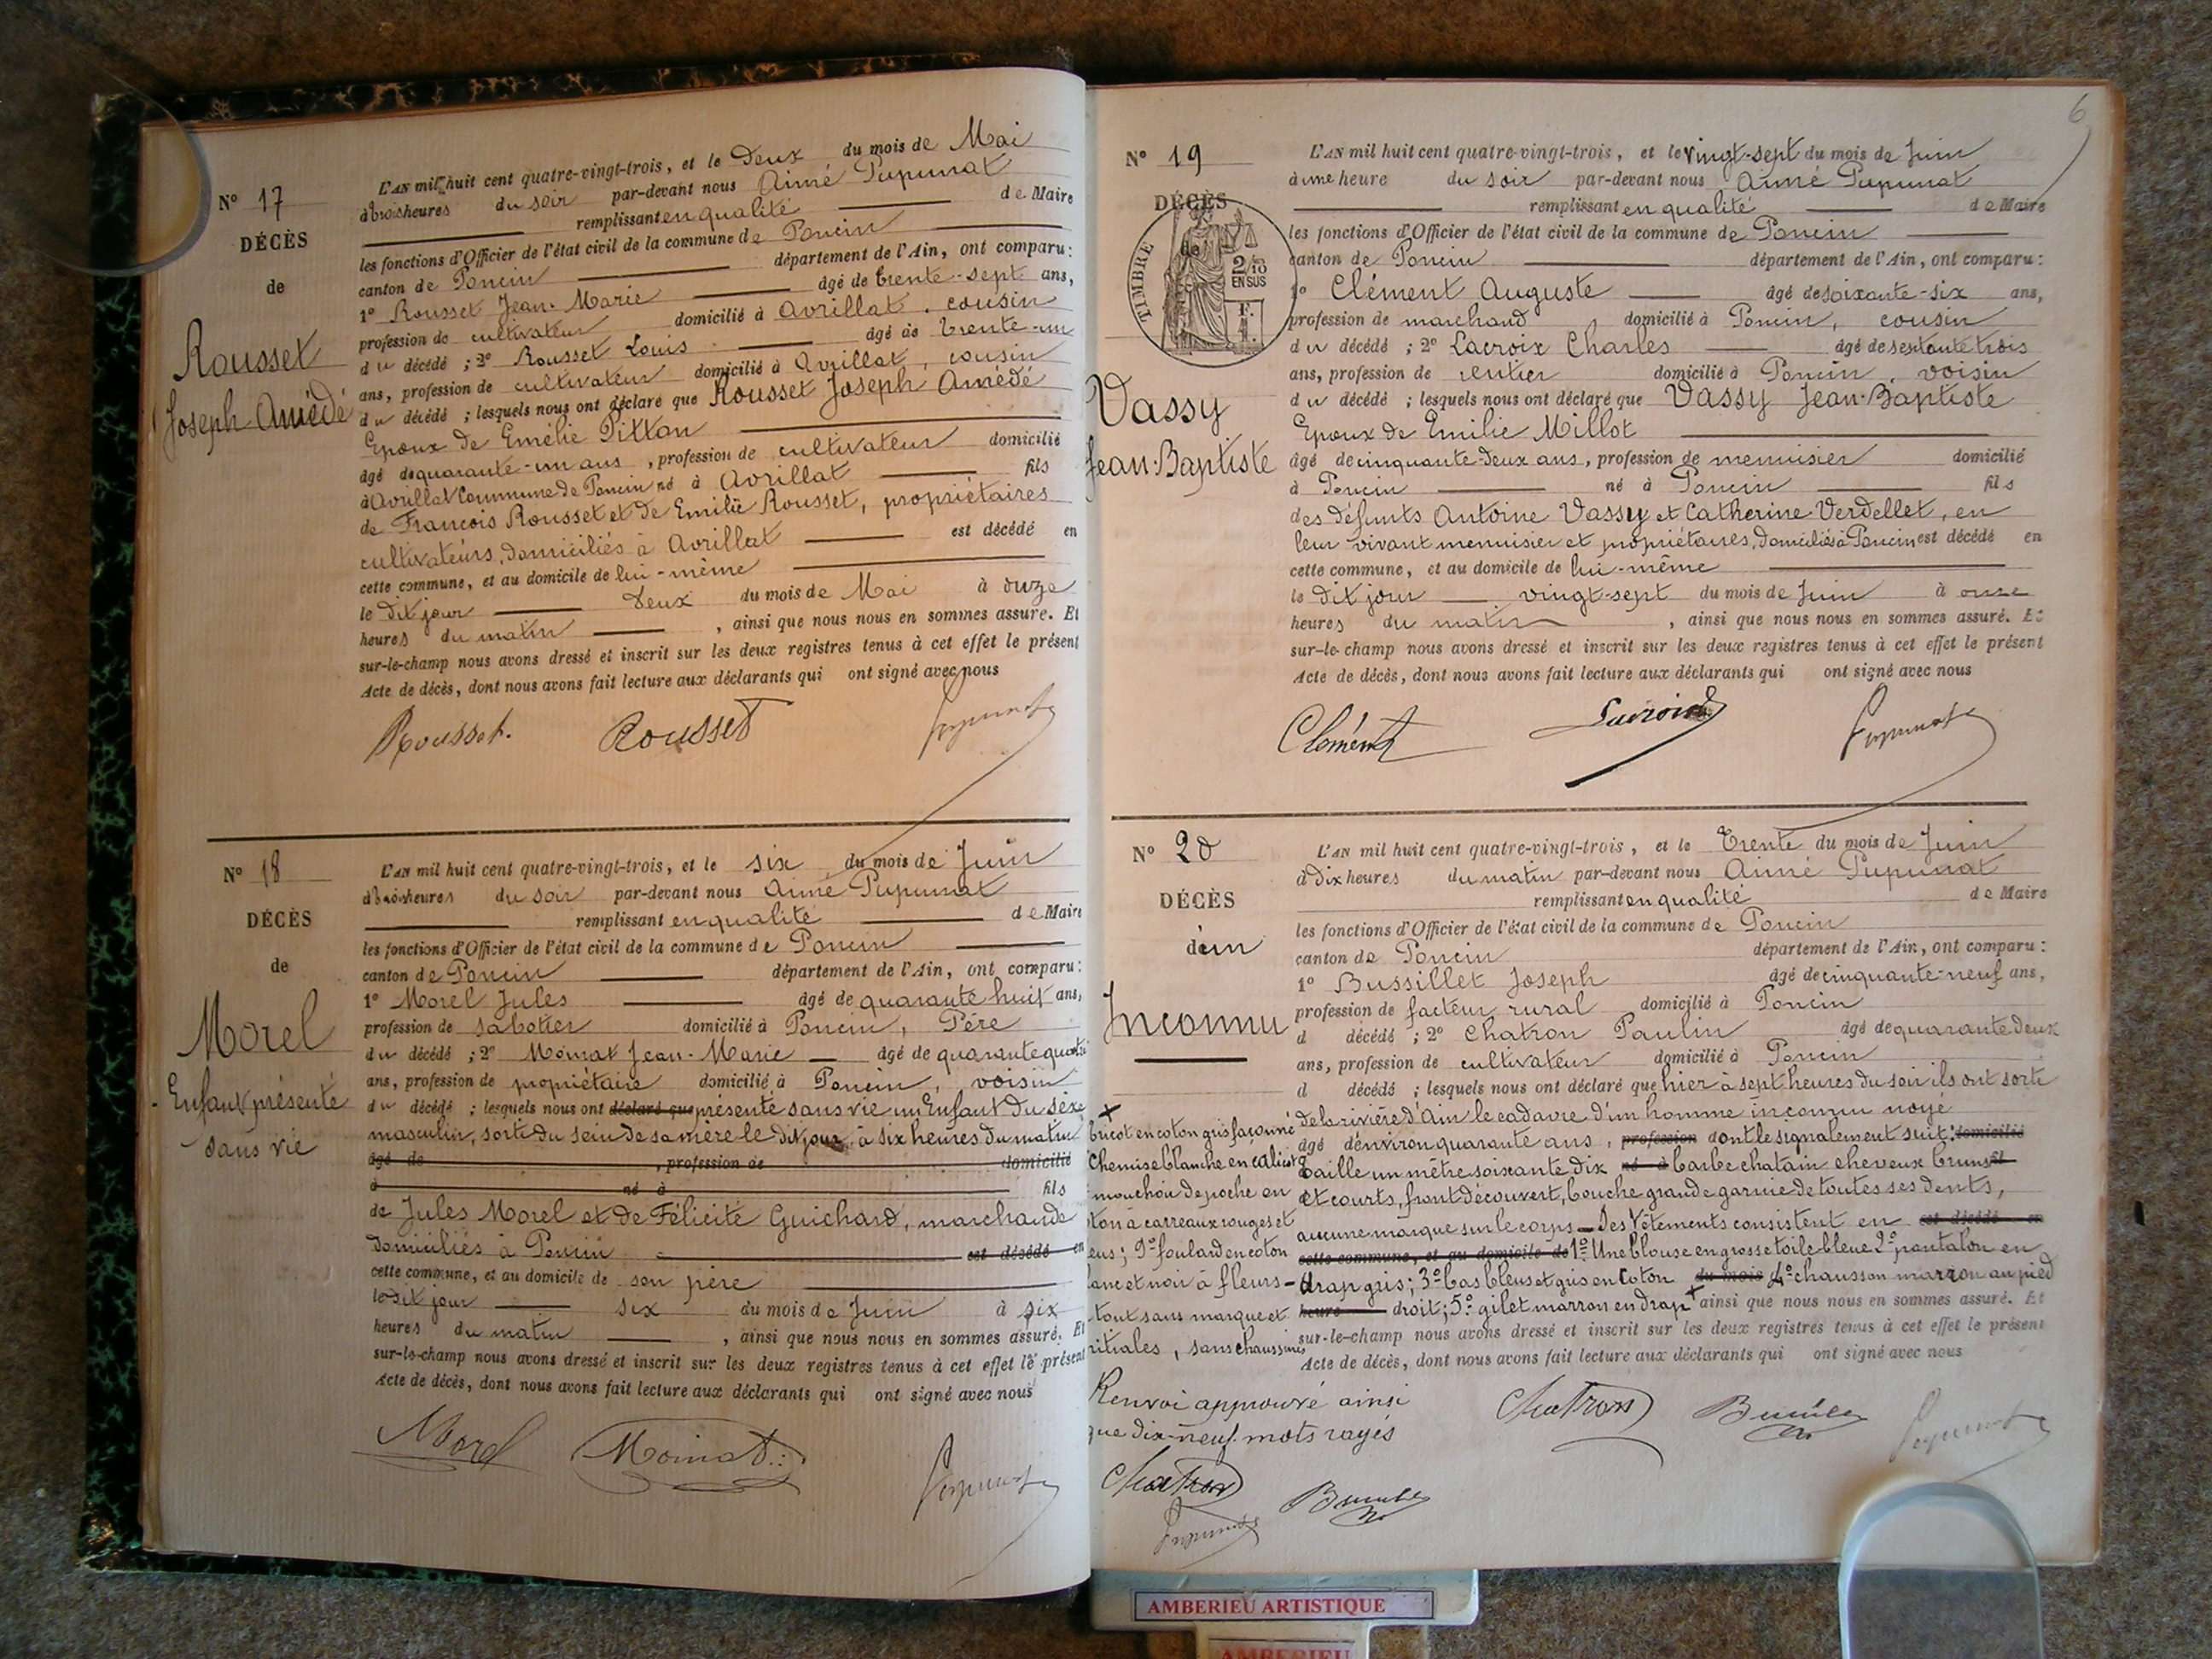 N° 17
DÉCÈS
de
Rousset
Joseph Amédé
L'AN mil huit cent quatre-vingt-trois, et le Deux du mois de Mai
à trois heures du soir par-devant nous Aimé Pupunat
remplissant en qualité de Maire
les fonctions d'Officier de l'état civil de la commune de Poncin
canton de Poncin département de l'Ain, ont comparu:
1° Rousset Jean-Marie âgé de trente-sept ans,
profession de cultivateur domicilié à Avrillat, cousin
du décédé ; 2° Rousset Louis âgé de trente-un
ans, profession de cultivateur domicilié à Avrillat, cousin
du décédé ; lesquels nous ont déclaré que Rousset Joseph Amédé
Epoux de Emélie Pittan
âgé de quarante-un ans, profession de cultivateur domicilié
à Avrillat Commune de Poncin né à Avrillat fils
de François Rousset et de Emilie Rousset, propriétaires
cultivateurs, domiciliés à Avrillat est décédé en
cette commune, et au domicile de lui-même
le dit jour deux du mois de Mai à onze
heures du matin, ainsi que nous nous en sommes assuré. Et
sur-le-champ nous avons dressé et inscrit sur les deux registres tenus à cet effet le présent
Acte de décès, dont nous avons fait lecture aux déclarants qui ont signé avec nous
Rousset. Rousset Pupunat
N° 18
DÉCÈS
de
Morel
Enfant présenté
sans vie
L'AN mil huit cent quatre-vingt-trois, et le six du mois de Juin
à trois heures du soir par-devant nous Aimé Pupunat
remplissant en qualité de Maire
les fonctions d'Officier de l'état civil de la commune de Poncin
canton de Poncin département de l'Ain, ont comparu:
1° Morel Jules âgé de quarante huit ans,
profession de sabotier domicilié à Poncin, Père
du décédé ; 2° Moinat Jean-Marie âgé de quarante quatre
ans, profession de propriétaire domicilié à Poncin, voisin
du décédé ; lesquels nous ont déclaré que présenté sans vie un Enfant du sexe
masculin, sorti du sein de sa mère le dit jour à six heures du matin
âgé de , profession de domicilié
à né à fils
de Jules Morel et de Félicité Guichard, marchande
domiciliés à Poncin est décédé en
cette commune, et au domicile de son père
le dit jour six du mois de Juin à six
heures du matin, ainsi que nous nous en sommes assuré. Et
sur-le-champ nous avons dressé et inscrit sur les deux registres tenus à cet effet le présent
Acte de décès, dont nous avons fait lecture aux déclarants qui ont signé avec nous
Morel Moinat Pupunat
6
N° 19
DÉCÈS
de
TIMBRE
2/10
EN SUS
F.
1.
Vassy
Jean-Baptiste
L'AN mil huit cent quatre-vingt-trois, et le vingt-sept du mois de Juin
à une heure du soir par-devant nous Aimé Pupunat
remplissant en qualité de Maire
les fonctions d'Officier de l'état civil de la commune de Poncin
canton de Poncin département de l'Ain, ont comparu:
1° Clément Auguste âgé de soixante-six ans,
profession de marchand domicilié à Poncin, cousin
du décédé ; 2° Lacroix Charles âgé de septante trois
ans, profession de rentier domicilié à Poncin, voisin
du décédé ; lesquels nous ont déclaré que Vassy Jean-Baptiste
Epoux de Emilie Millot
âgé de cinquante-deux ans, profession de menuisier domicilié
à Poncin né à Poncin fils
des défunts Antoine Vassy et Catherine Verdellet, en
leur vivant menuisier et propriétaires, domiciliés à Poncin est décédé en
cette commune, et au domicile de lui-même
le dit jour vingt-sept du mois de Juin à onze
heures du matin, ainsi que nous nous en sommes assuré. Et
sur-le-champ nous avons dressé et inscrit sur les deux registres tenus à cet effet le présent
Acte de décès, dont nous avons fait lecture aux déclarants qui ont signé avec nous
Clément Lacroix Pupunat
N° 20
DÉCÈS
d'un
Inconnu
L'AN mil huit cent quatre-vingt-trois, et le Trente du mois de Juin
à dix heures du matin par-devant nous Aimé Pupunat
remplissant en qualité de Maire
les fonctions d'Officier de l'état civil de la commune de Poncin
canton de Poncin département de l'Ain, ont comparu:
1° Bussillet Joseph âgé de cinquante-neuf ans,
profession de facteur rural domicilié à Poncin
d décédé ; 2° Chatron Paulin âgé de quarante deux
ans, profession de cultivateur domicilié à Poncin
d décédé ; lesquels nous ont déclaré que hier à sept heures du soir ils ont sorti
de la rivière d'Ain le cadavre d'un homme inconnu noyé
âgé d'environ quarante ans, profession dont le signalement suit: domicilié
taille un mètre soixante dix né à barbe chatain cheveux bruns fil
et courts, front découvert, bouche grande garnie de toutes ses dents,
aucune marque sur le corps - Des Vêtements consistent en est décédé en
cette commune, et au domicile de 1° Une blouse en grosse toile bleue 2° pantalon en
drap gris; 3° bas bleus et gris en coton du mois 4° chausson marron au pied
heure droit; 5° gilet marron en drap + ainsi que nous nous en sommes assuré. Et
sur-le-champ nous avons dressé et inscrit sur les deux registres tenus à cet effet le présent
Acte de décès, dont nous avons fait lecture aux déclarants qui ont signé avec nous
+
tricot en coton gris façonné
Chemise blanche en calicot
mouchoir de poche en
ton à carreaux rouges et
eus; 9° foulard en coton
lanc et noir à fleurs -
tout sans marque et
nitiales, sans chaussures
Renvoi approuvé ainsi
que dix-neuf mots rayés
Chatron Bussillet Pupunat
Chatron Bussillet
Pupunat
AMBERIEU ARTISTIQUE
AMBERIEU